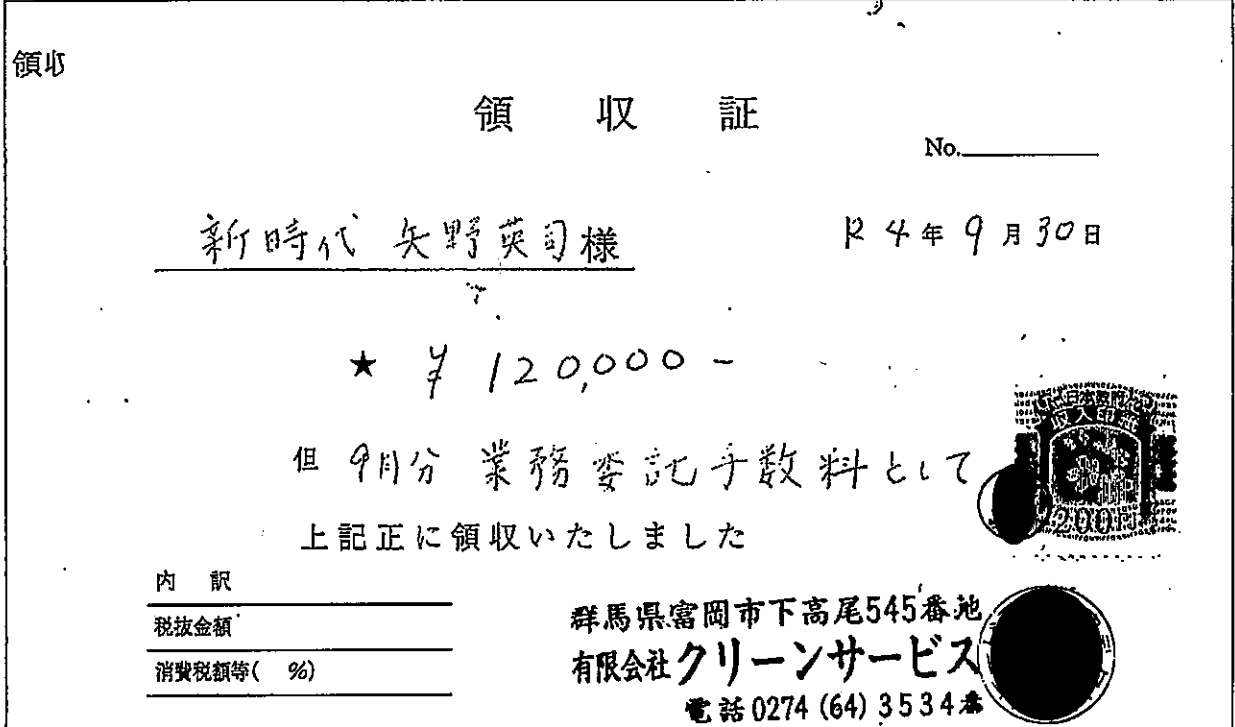 領収
領 収 証
No.
新時代 矢野英司様
R4年9月30日
★ ¥120,000-
但 9月分 業務委託手数料として
上記正に領収いたしました
日本政府
収入印紙
200円
内 訳
税抜金額
消費税額等( %)
群馬県富岡市下高尾545番地
有限会社クリーンサービス
電話0274(64)3534番